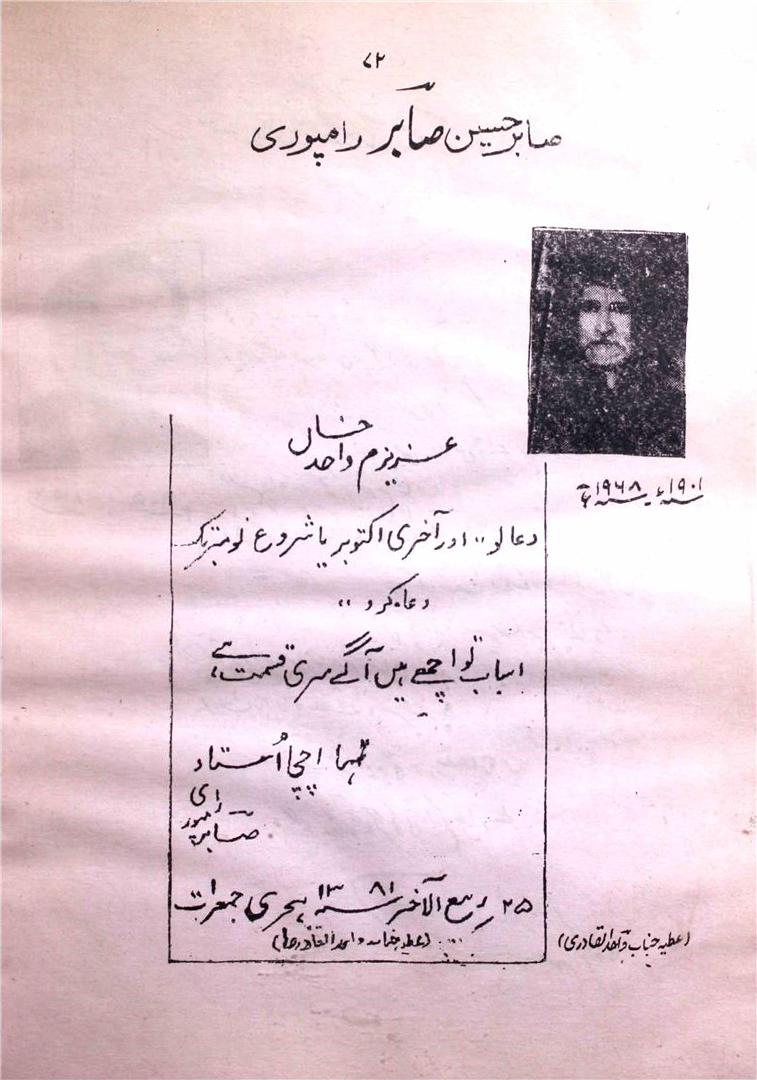 ۷۲
صابر حسین صابر رامپوری
۱۹۰۱ء ۔ ۱۹۶۸ء
عزیزم واحد خاں
دعا لو ،، اور آخری اکتوبر یا شروع نومبر تک
دعاء کرو ،،
اسباب تو اچھے ہیں آگے میری قسمت ہے،
تمہارا چچا استاد
صابر رامپوری
۲۵ ربیع الآخر ۱۳۸۱ ہجری جمعرات
(عطیہ جناب واحد القادری)
(عطیہ جناب واحد القادری)